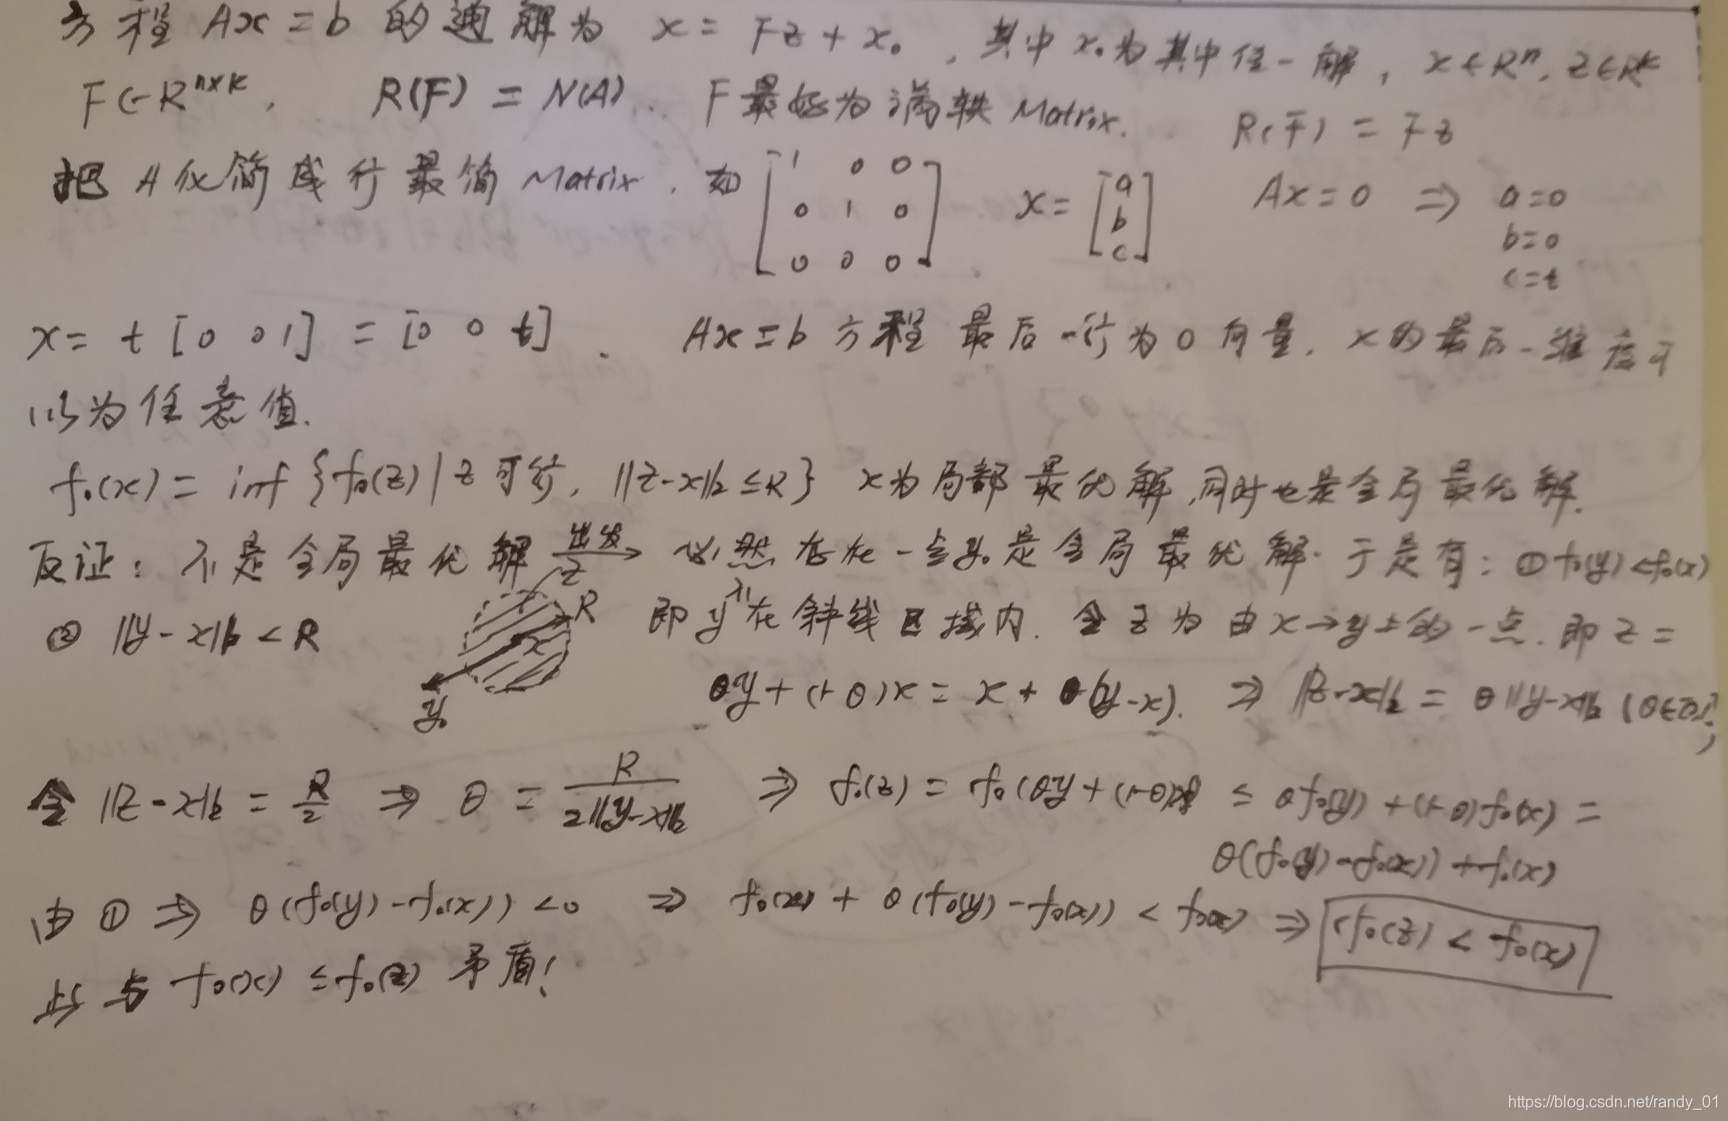 方程 Ax = b 的通解为 x = Fz + x₀ ，其中 x₀为其中任一解，x∈Rⁿ, z∈Rᵏ
F∈Rⁿˣᵏ， R(F) = N(A). F最好为满轶 Matrix. R(F) = Fz
把 A化简成行最简 Matrix . 如 [1 0 0 x = [a Ax = 0 ⇒ a=0
0 1 0 b b=0
0 0 0] c] c=t
x = t [0 0 1] = [0 0 t] . Ax = b 方程最后一行为0向量, x的最后一维度可
以为任意值.
f₀(x) = inf {f₀(z) | z可行, ||z-x||₂ ≤ R} x为局部最优解,同时也是全局最优解.
反证: 不是全局最优解 出发→ 必然存在一点y₀是全局最优解. 于是有: ① f₀(y) < f₀(x)
② ||y-x||₂ < R z R x y₀ 即 y不在斜线区域内. 令 z 为由 x→y上的一点. 即 z =
θy + (1-θ)x = x + θ(y-x). ⇒ ||z-x||₂ = θ||y-x||₂
令 ||z-x||₂ = R/2 ⇒ θ = R/2||y-x||₂ ⇒ f₀(z) = f₀(θy + (1-θ)x) ≤ θf₀(y) + (1-θ)f₀(x) =
θ(f₀(y) - f₀(x)) + f₀(x)
由 ① ⇒ θ(f₀(y) - f₀(x)) < 0 ⇒ f₀(x) + θ(f₀(y) - f₀(x)) < f₀(x) ⇒ f₀(z) < f₀(x)
此与 f₀(x) ≤ f₀(z) 矛盾!
https://blog.csdn.net/randy_01